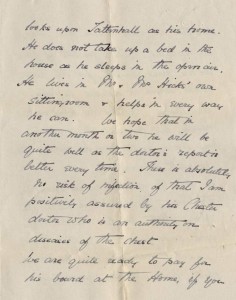 looks upon Tattenhall as his home.
He does not take up a bed in the
house as he sleeps in the open air.
He lives in Mr & Mrs Hicks' own
sitting room & helps in every way
he can. We hope that in
another month or two he will be
quite well as the doctor's report is
better every time. There is absolutely
no risk of infection of that I am
positively assured by his Chester
doctor who is an authority on
diseases of the chest
We are quite ready to pay for
his board at the Home, if you